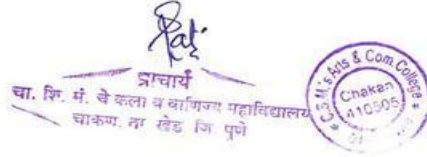 प्राचार्य
चा. शि. मं. चे कला व वाणिज्य महाविद्यालय
चाकण, ता खेड जि पुणे
C.S.M.'s Arts & Com. College
Chakan
410505